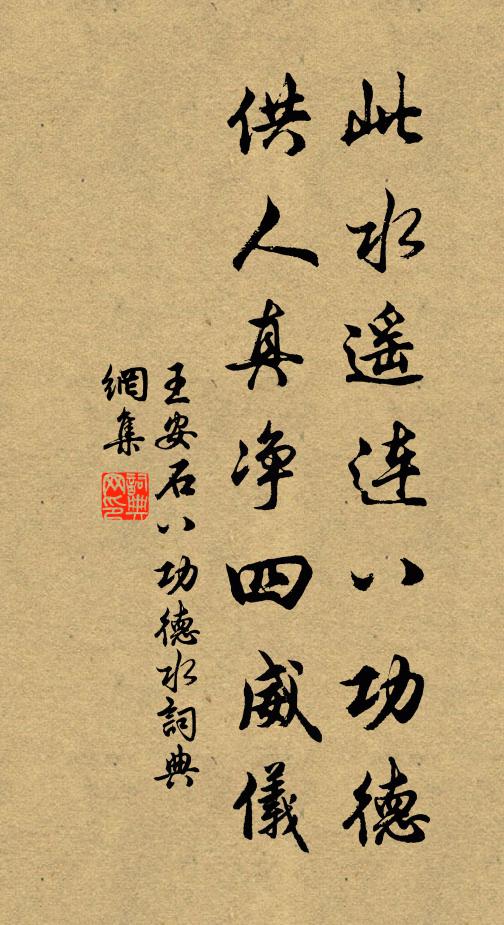 此水遥连八功德
供人真净四威儀
王安石八功德水詞典
網集
詞典
网印